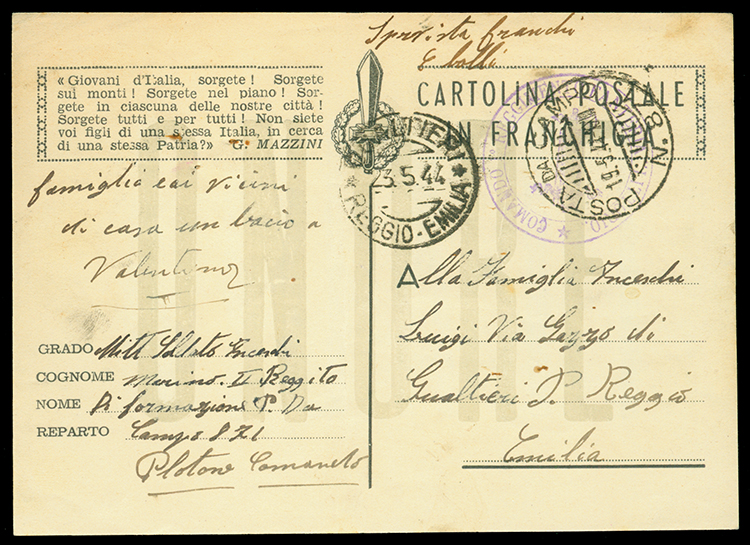 Sprovista franchi
e bolli
« Giovani d'Italia, sorgete ! Sorgete
sui monti ! Sorgete nel piano ! Sor-
gete in ciascuna delle nostre città !
Sorgete tutti e per tutti ! Non siete
voi figli di una stessa Italia, in cerca
di una stessa Patria?» G. MAZZINI
CARTOLINA POSTALE
IN FRANCHIGIA
GUALTIERI
23.5.44
REGGIO-EMILIA
POSTA DA CAMPO
N. 87
COMANDO
famiglia e ai vicini
di casa un bacio a
Valentino
GRADO Milt Soldato Incerti
COGNOME Marino. II Reggito
NOME Di formazione P. Da
REPARTO Campo 871
Plotone Comando
Alla Famiglia Incerti
Luigi Via Gazzo di
Gualtieri P. Reggio
Emilia
ONORE